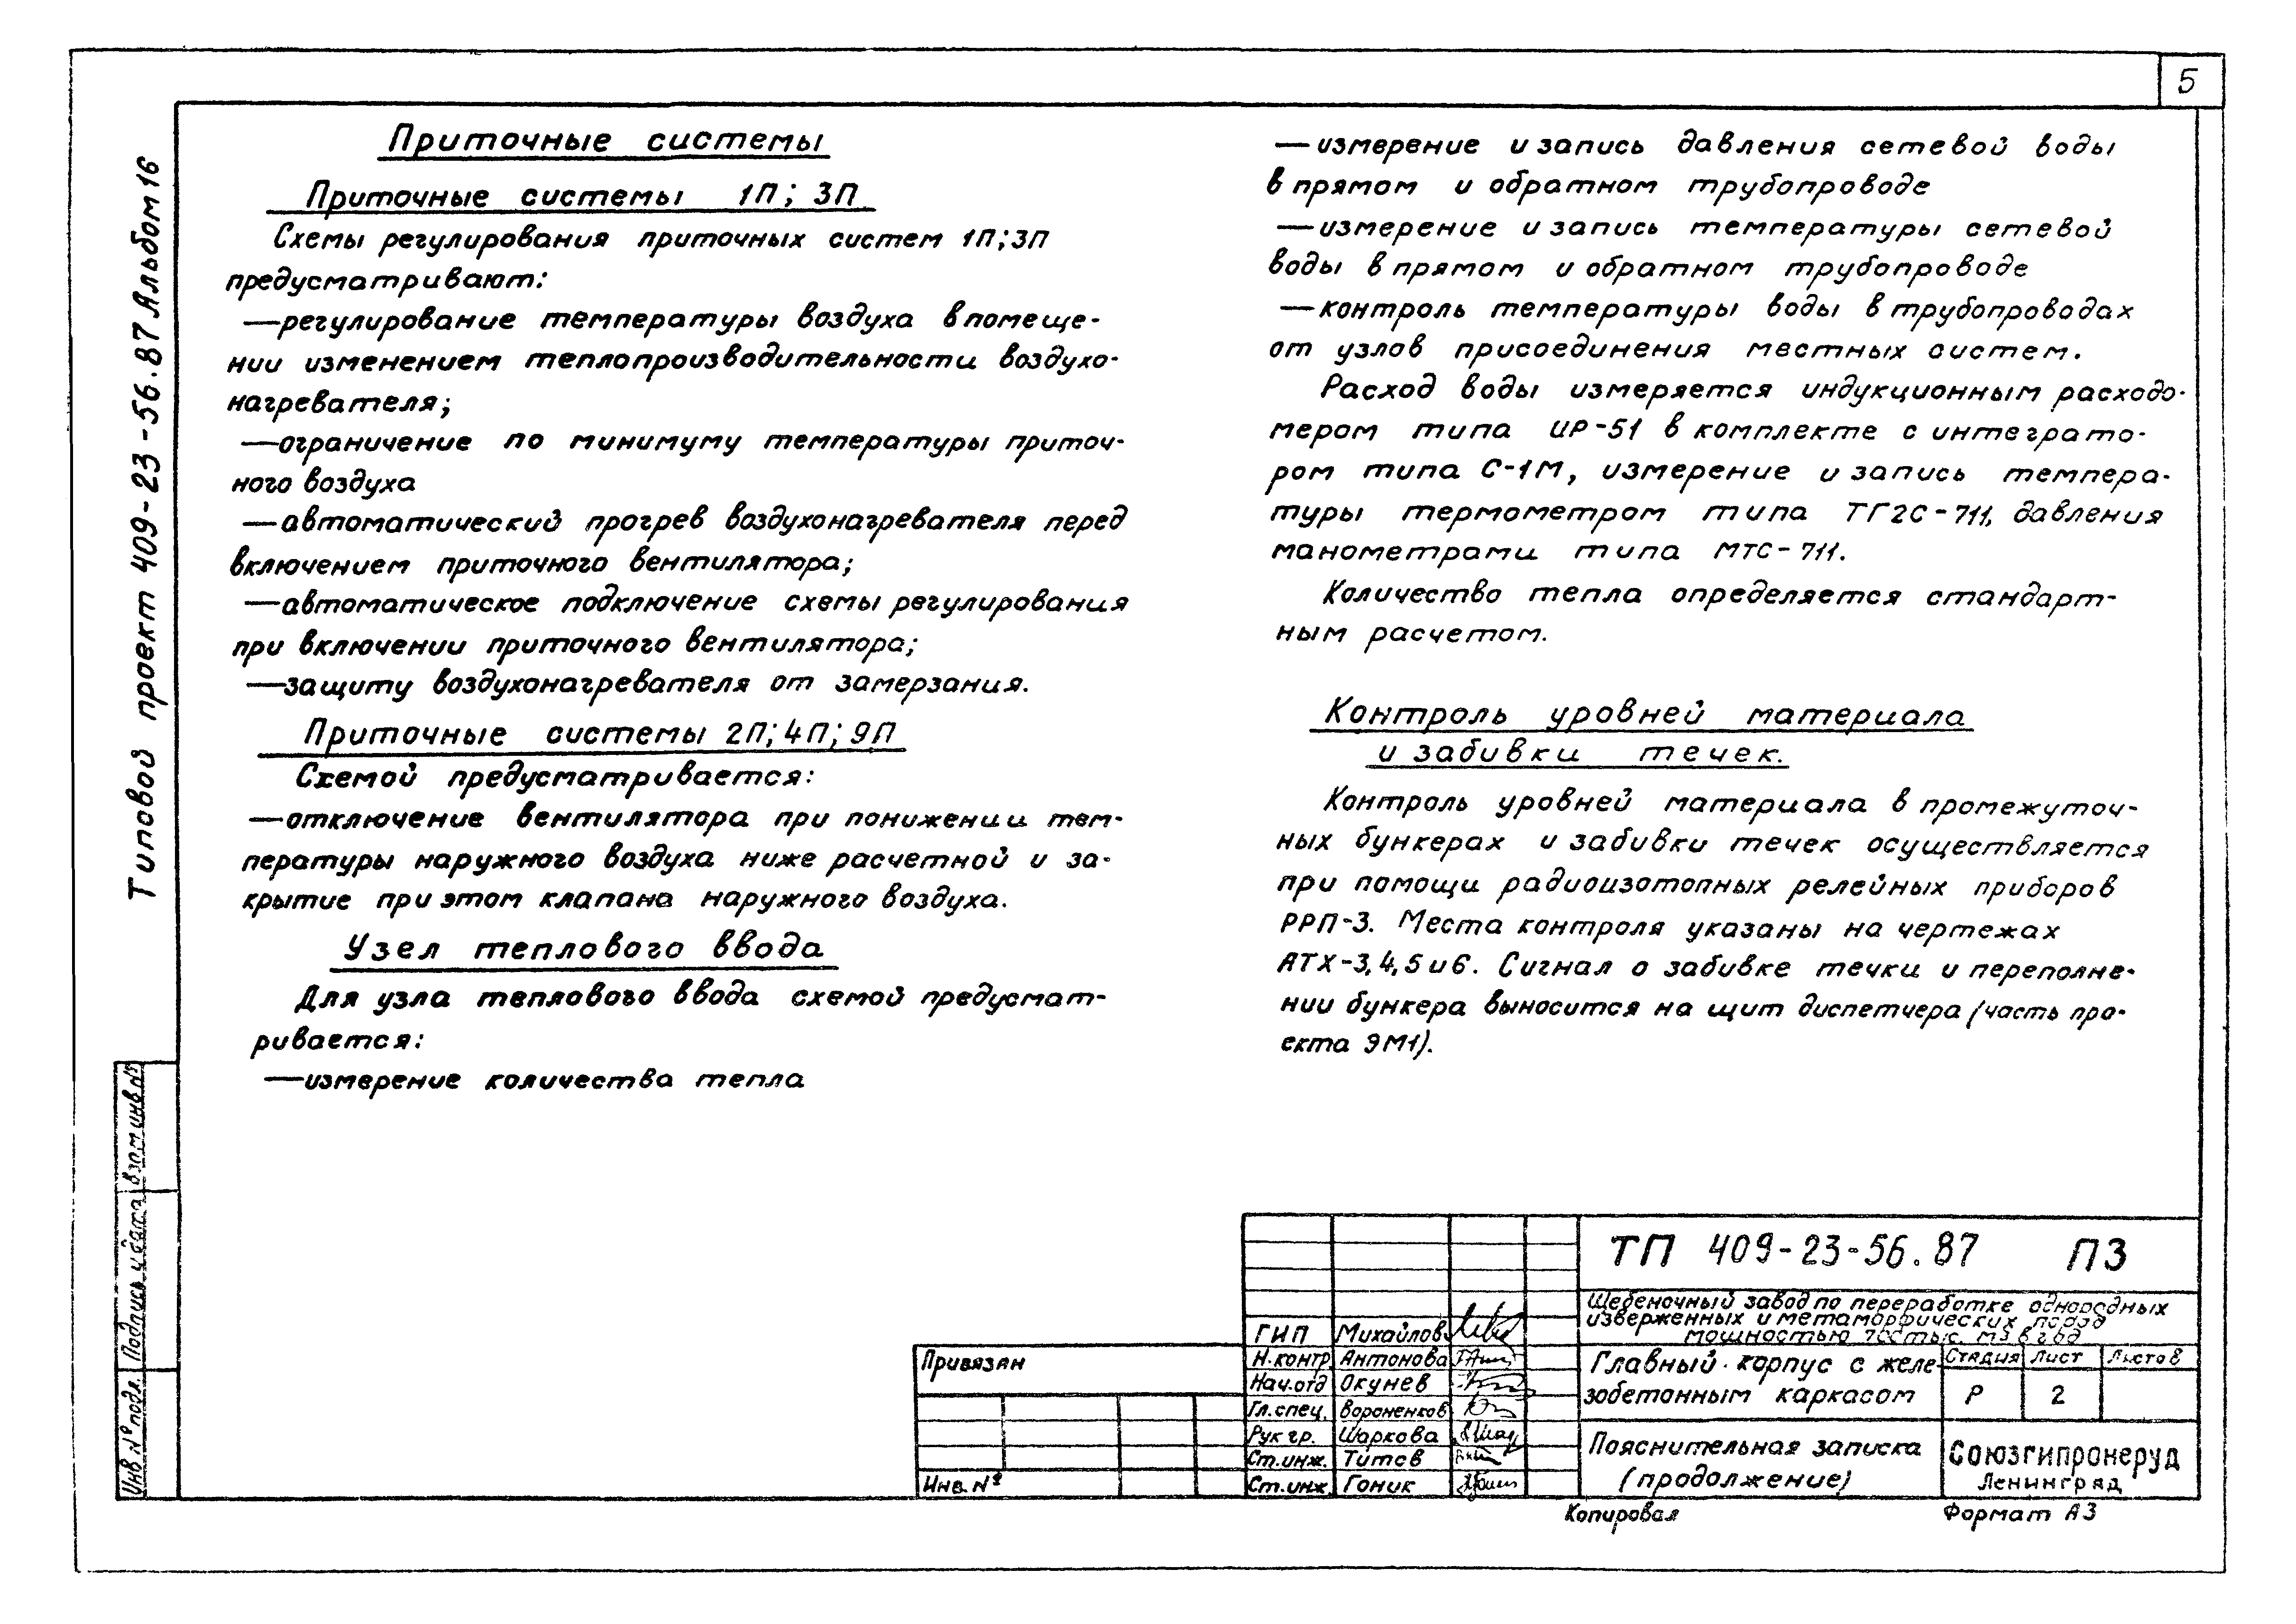 5
Типовой проект 409-23-56.87 Альбом 16
Приточные системы
Приточные системы 1П; 3П
Схемы регулирования приточных систем 1П; 3П
предусматривают:
—регулирование температуры воздуха в помеще-
нии изменением теплопроизводительности воздухо-
нагревателя;
—ограничение по минимуму температуры приточ-
ного воздуха
—автоматический прогрев воздухонагревателя перед
включением приточного вентилятора;
—автоматическое подключение схемы регулирования
при включении приточного вентилятора;
—защиту воздухонагревателя от замерзания.
Приточные системы 2П; 4П; 9П
Схемой предусматривается:
—отключение вентилятора при понижении тем-
пературы наружного воздуха ниже расчетной и за-
крытие при этом клапана наружного воздуха.
Узел теплового ввода
Для узла теплового ввода схемой предусмат-
ривается:
—измерение количества тепла
—измерение и запись давления сетевой воды
в прямом и обратном трубопроводе
—измерение и запись температуры сетевой
воды в прямом и обратном трубопроводе
—контроль температуры воды в трубопроводах
от узлов присоединения местных систем.
Расход воды измеряется индукционным расходо-
мером типа ИР-51 в комплекте с интеграто-
ром типа С-1М, измерение и запись темпера-
туры термометром типа ТГ2С-711, давления
манометрами типа МТС-711.
Количество тепла определяется стандарт-
ным расчетом.
Контроль уровней материала
и забивки течек.
Контроль уровней материала в промежуточ-
ных бункерах и забивки течек осуществляется
при помощи радиоизотопных релейных приборов
РРП-3. Места контроля указаны на чертежах
АТХ-3,4,5 и 6. Сигнал о забивке течки и переполне-
нии бункера выносится на щит диспетчера (часть про-
екта ЭМ1).
Инв № подл. Подпись и дата Взам инв №
Привязан
Инв. №
ГИП Михайлов
Н.контр Антонова
Нач.отд Окунев
Гл.спец. Вороненков
Рук гр. Шаркова
Ст.инж. Титов
Ст.инж. Гоник
ТП 409-23-56.87 ПЗ
Щебеночный завод по переработке однородных
изверженных и метаморфических пород
мощностью тыс. м3 в год
Главный корпус с желе-
зобетонным каркасом
Стадия Лист Листов
Р 2
Пояснительная записка
(продолжение)
Союзгипронеруд
Ленинград
Копировал Формат А3